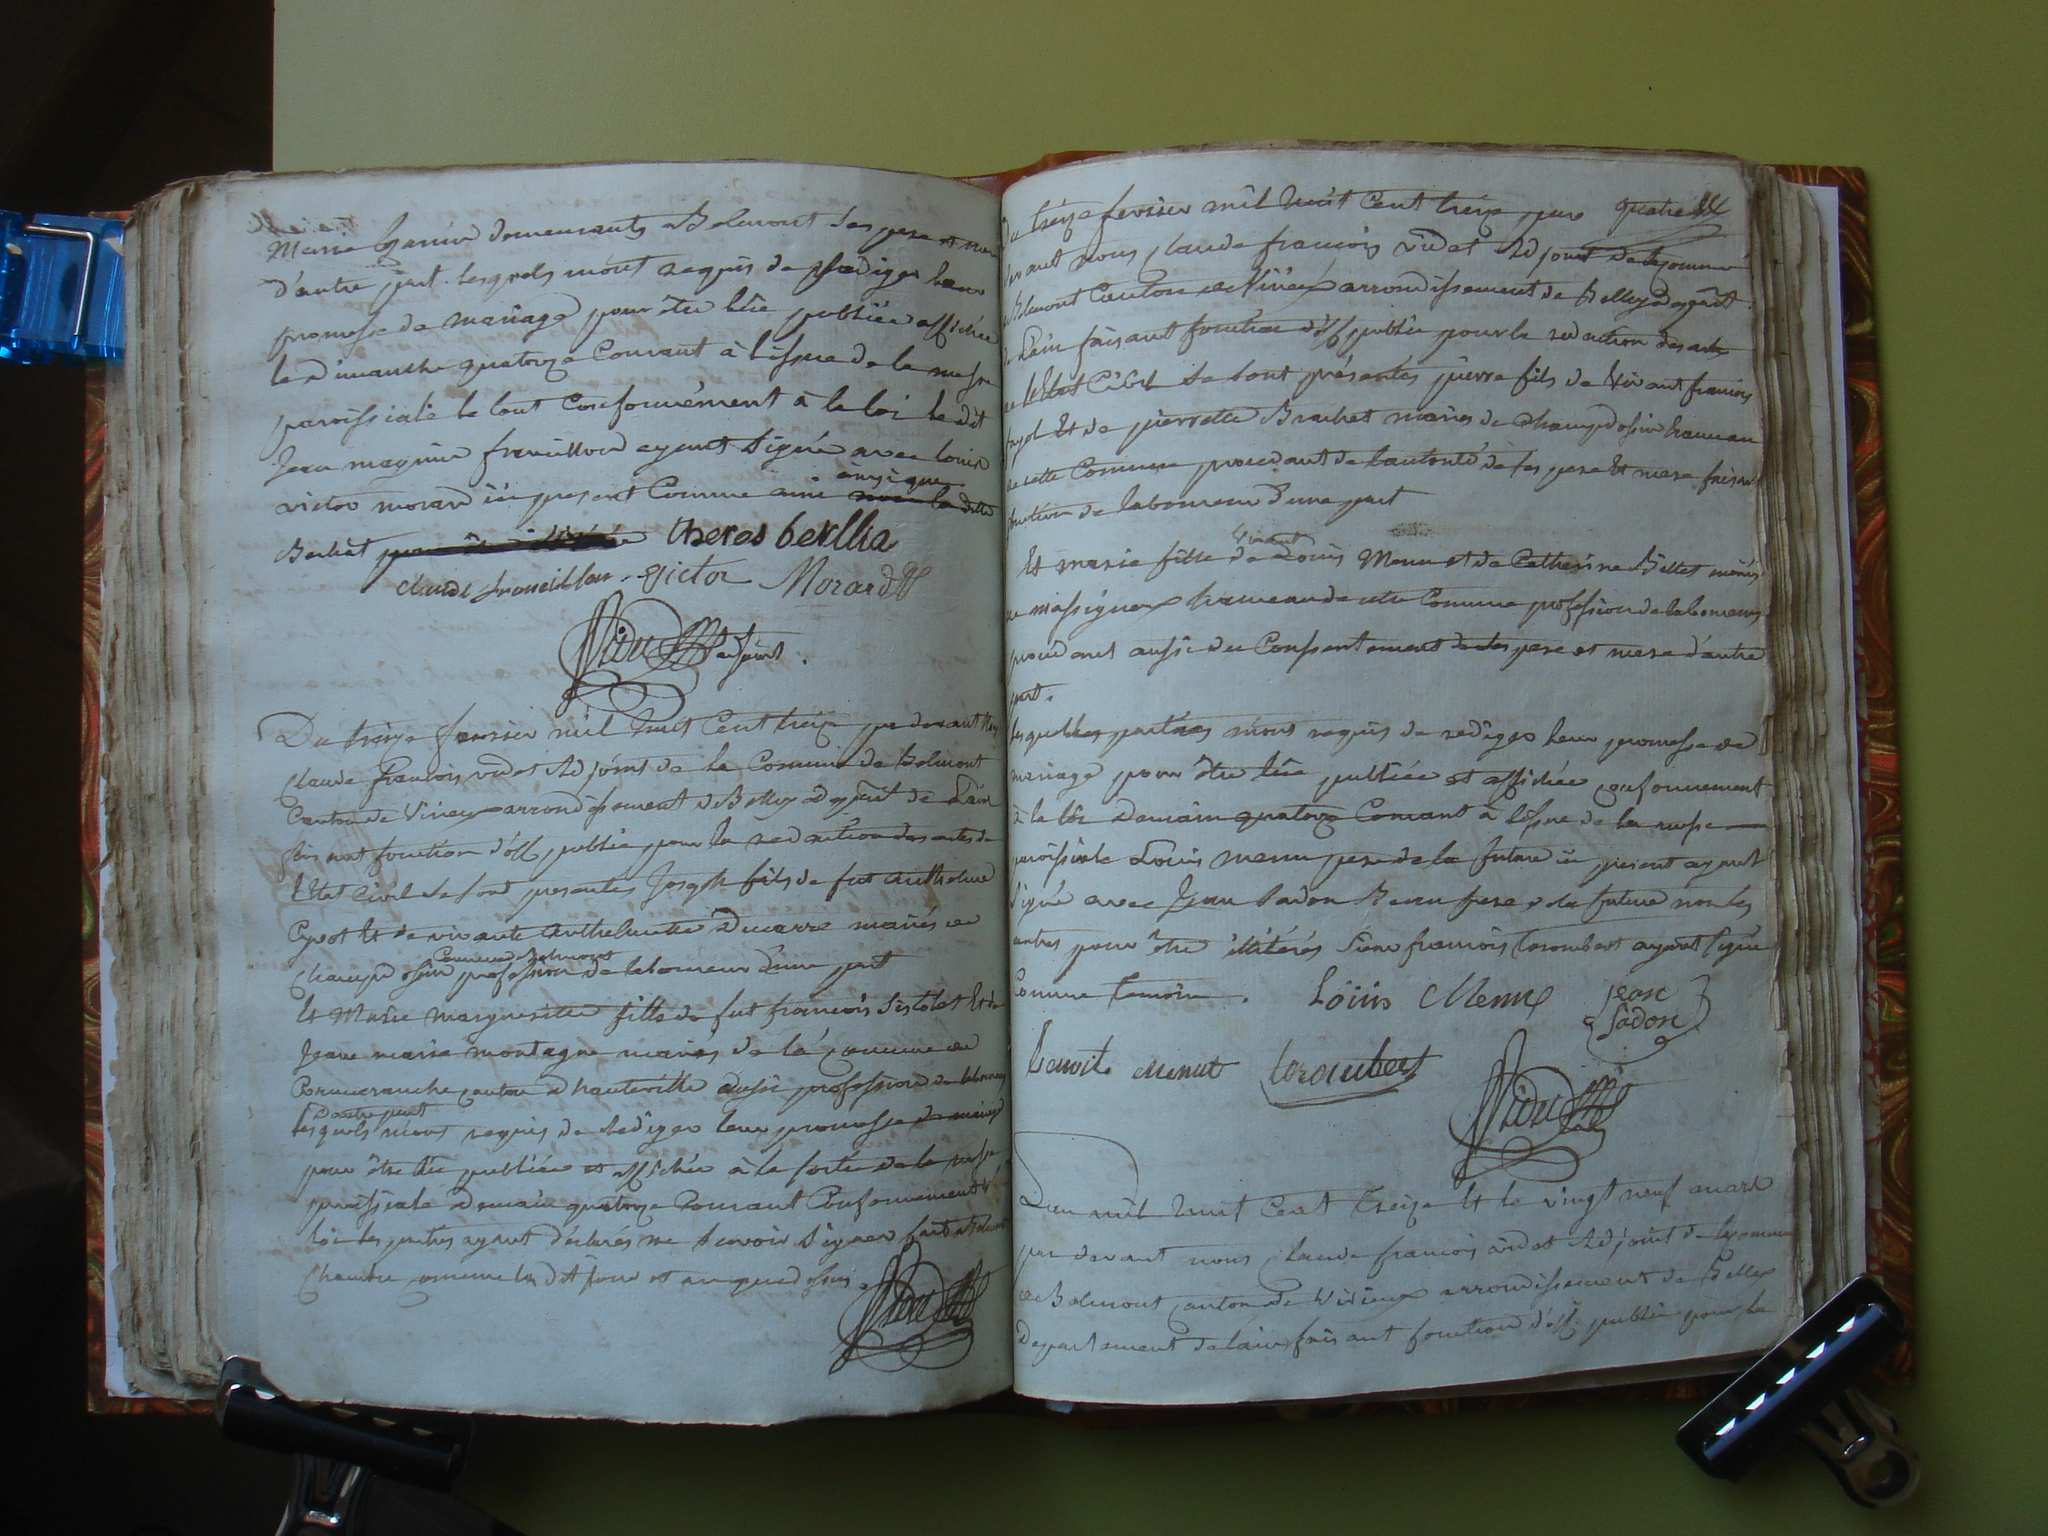 Marie demeurants a Belmont ses pere et mere
d'autre part. lesquels m'ont requis de rediger leur
promesse de mariage pour être lüe publiée affichée
le dimanche quatorze Courant à l'issue de la messe
paroissiale le tout Conformément à la loi le dit
Jean frouillou ayant Signé avec louis
ainsi que
victor morard ici present Comme ami la ditte
Berliat theros berllia
claude frouillou victor Morard
Videt adjoint.
Du treize fevrier mil huit Cent treize par devant Nous
Claude francois videt Adjoint de la Commune de Belmont
Canton de Virieux arrondissement de Belley depart de Lain
faisant fonction d'off publie pour la redaction des actes de
l'Etat Civil se sont presentés Joseph fils de fut anthelme
Cyvot Et de vivante Anthelmette Ducarre mariés de
Commune de Belmont
Champdossin profession de laboureur d'une part
Et Marie margueritte fille de fut francois Et de
Jeane marie montagne mariés de la Commune de
Cormaranche canton d'hauteville aussi profession de laboureur
d'autre part
lesquels m'ont requis de rediger leur promesse de mariage
pour être lüe publiée et affichée à la sortie de la messe
paroissiale demain quatorze Courant Conformement à
loi les parties ayant déclarés ne scavoir Signer fait a Belmont
Chambre commune les dit jour et an que dessus.
Videt
quatre
Du treize fevrier mil huit Cent treize par
devant nous Claude francois videt Adjoint de la Commune
de Belmont Canton de Virieux arrondissement de Belley depart.
de Lain faisant fonction d'off publie pour la redaction des actes
de l'Etat Civil se sont présentés pierre fils de vivant francois
Et de pierrette Brachet mariés de Champdossin hameau
de cette Commune procedant de l'autorité de ses pere Et mere faisant
fonction de laboureur d'une part
vivant
Et marie fille de Louis Menu et de Catherine Billet mariés
de massignieux hameau de cette Commune profession de laboureurs
procedant aussi du Consentement de ses pere et mere d'autre
part.
lesquelles parties m'ont requis de rediger leur promesse de
mariage pour être lüe publiée et affichée conformement
à la loi demain quatorze Courant à l'issue de la messe
paroissiale Louis menu pere de la future ici present ayant
Signé avec Jean Sadon Beau frere de la future non les
autres pour être illitérés Sieur francois Corombert ayant Signé
Comme temoin. Loüis Menu Jean
Sadon
Benoit menut Corombert
Videt
L'an mil huit Cent Treize Et le vingt neuf mars
par devant nous Claude francois videt Adjoint de la Commune
de Belmont canton de Virieux arrondissement de Belley
Departement de lain faisant fonction d'off. publie pour la